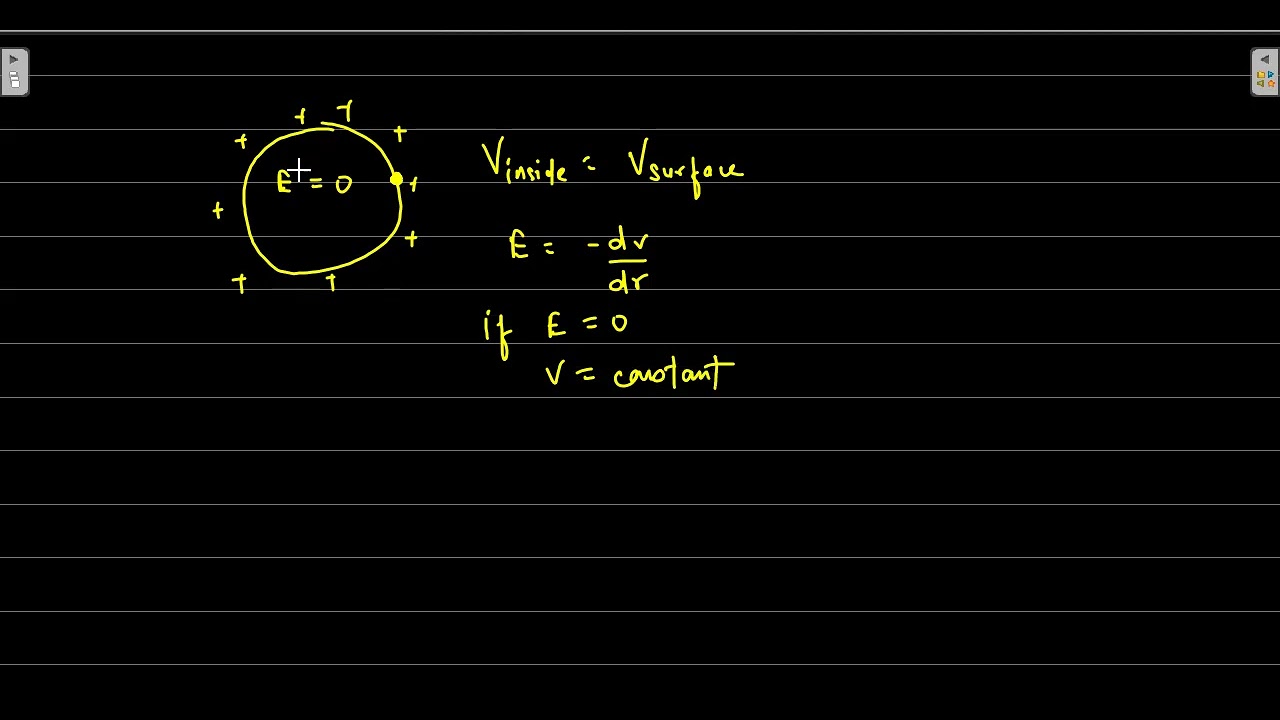 + + + +
E = 0
+ + + + + +
Vinside = Vsurface
E = -dv/dr
if E = 0
V = constant